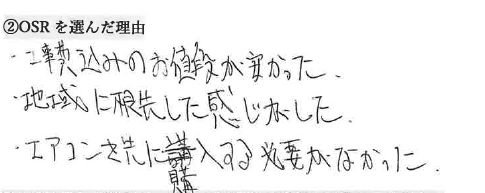 ②OSR を選んだ理由
・工事費込みのお値段が安かった.
・地域に根差した感じがした.
・エアコンを先に購入する必要がなかった.